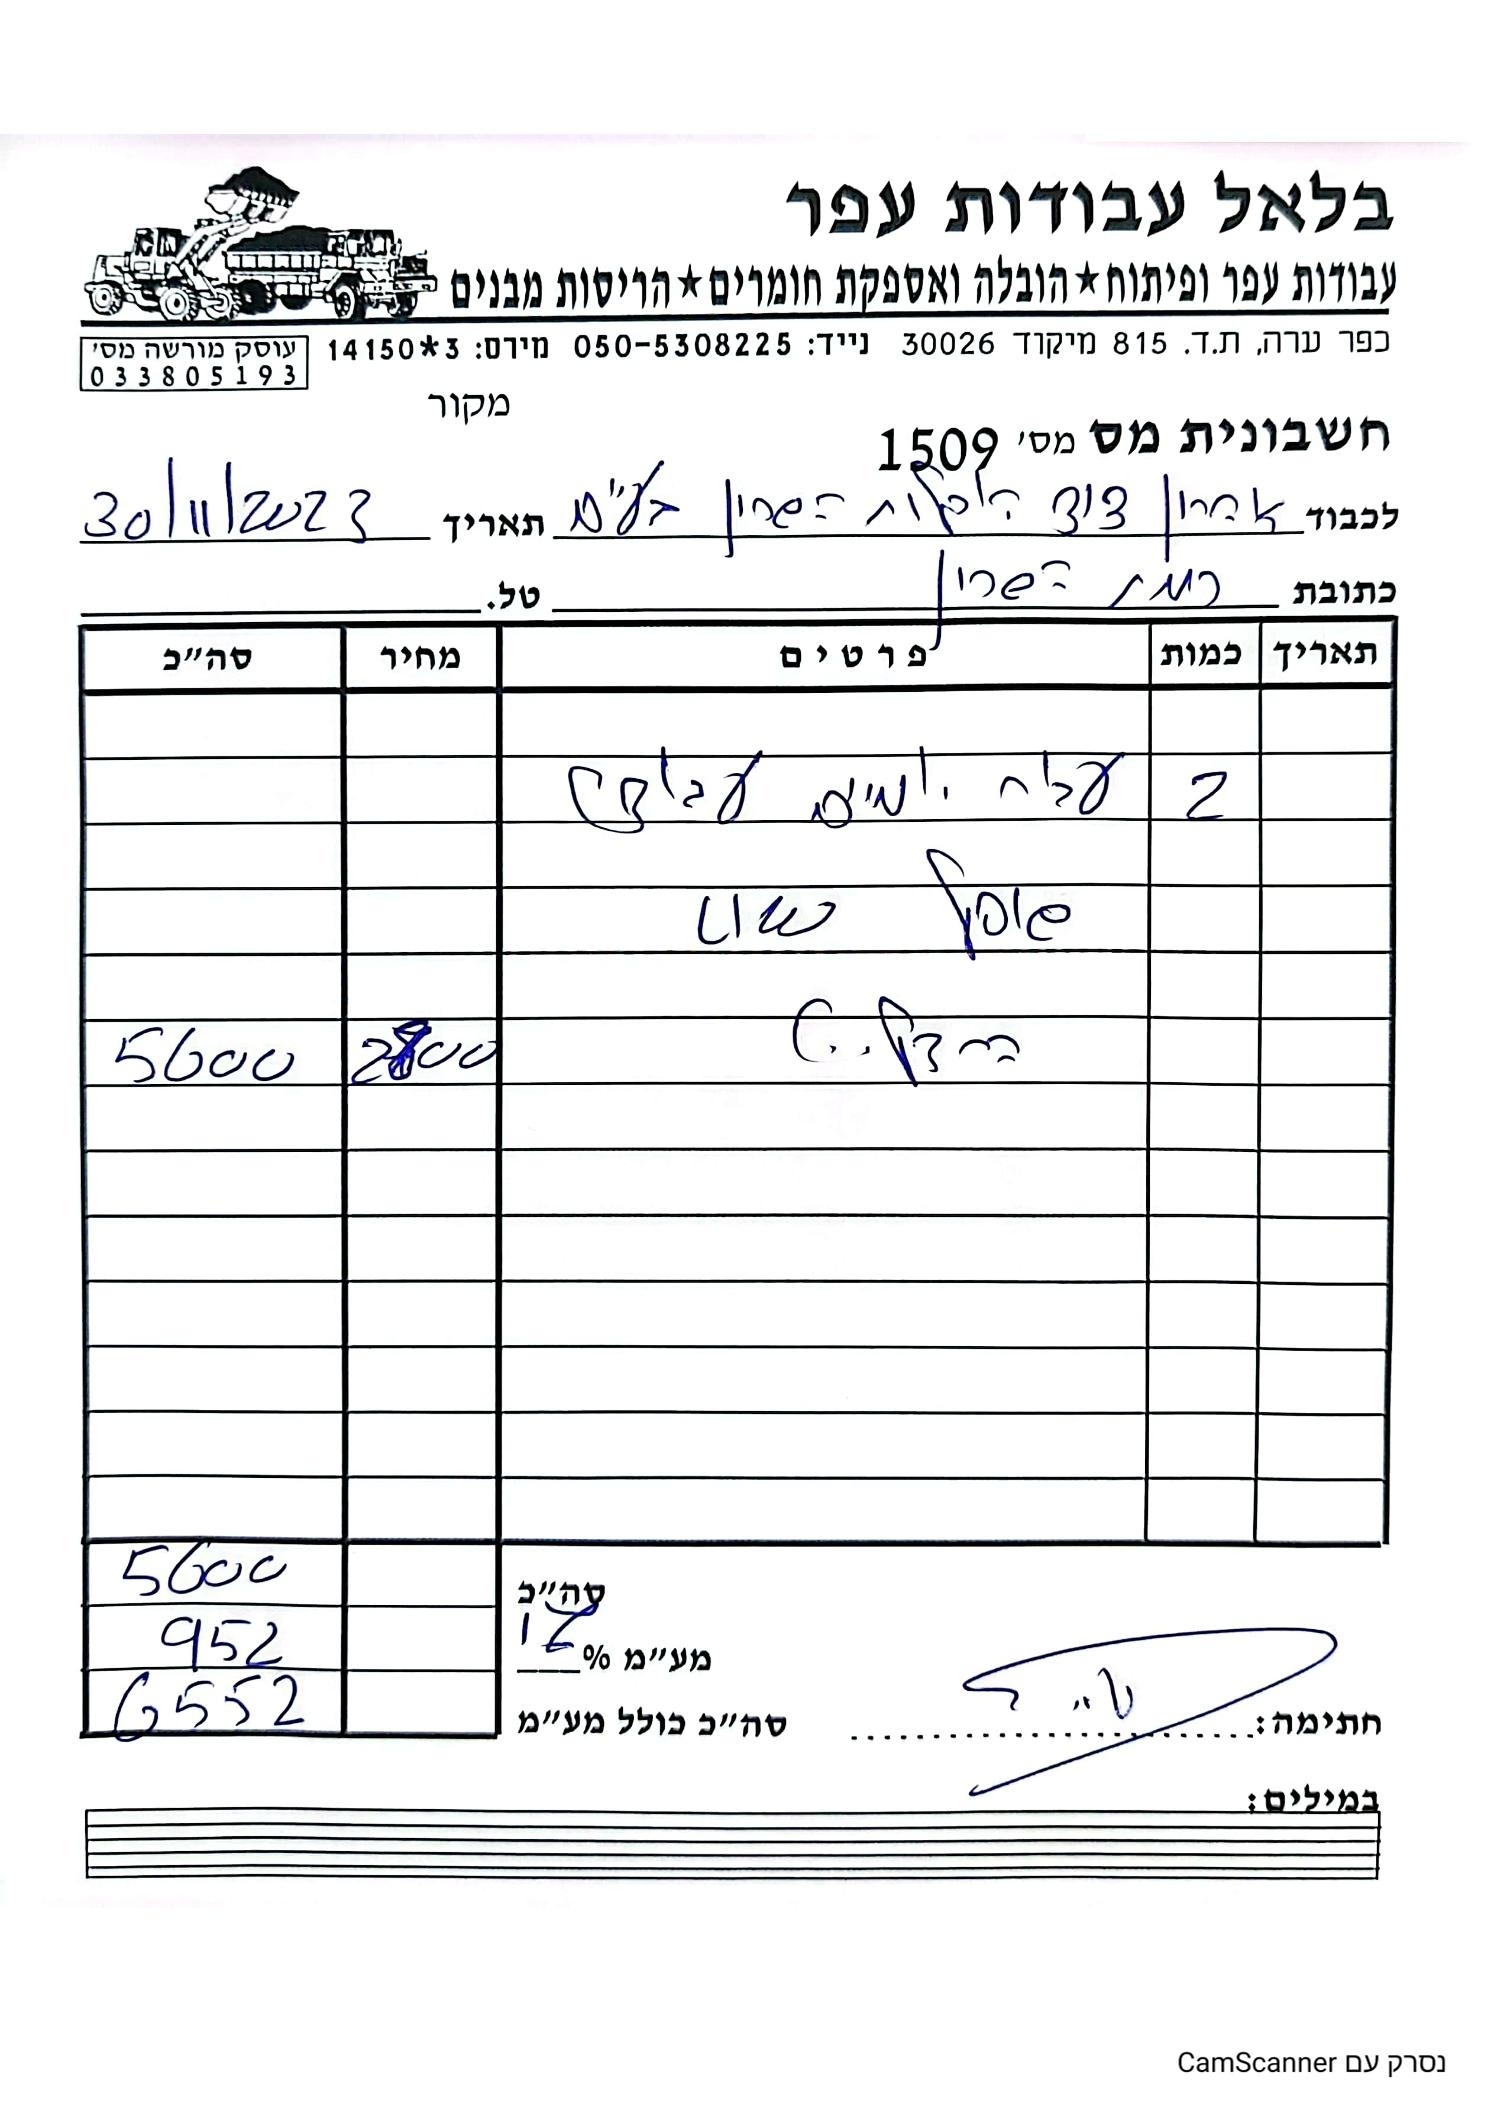 בלאל עבודות עפר
עבודות עפר ופיתוח★הובלה ואספקת חומרים★הריסות מבנים
כפר ערה, ת.ד. 815 מיקוד 30026 נייד: 050-5308225 מירס: 3*14150
עוסק מורשה מס׳
033805193
מקור
חשבונית מס מס׳ 1509
לכבוד אהרון ציוד השרון בע"מ תאריך 30/11/2023
כתובת רמת השרון טל.
תאריך כמות פרטים מחיר סה״כ
2 ימים
שופל
2800 5600
סה״כ 5600
מע״מ % 17 952
סה״כ כולל מע״מ 6552
חתימה:
במילים:
נסרק עם CamScanner